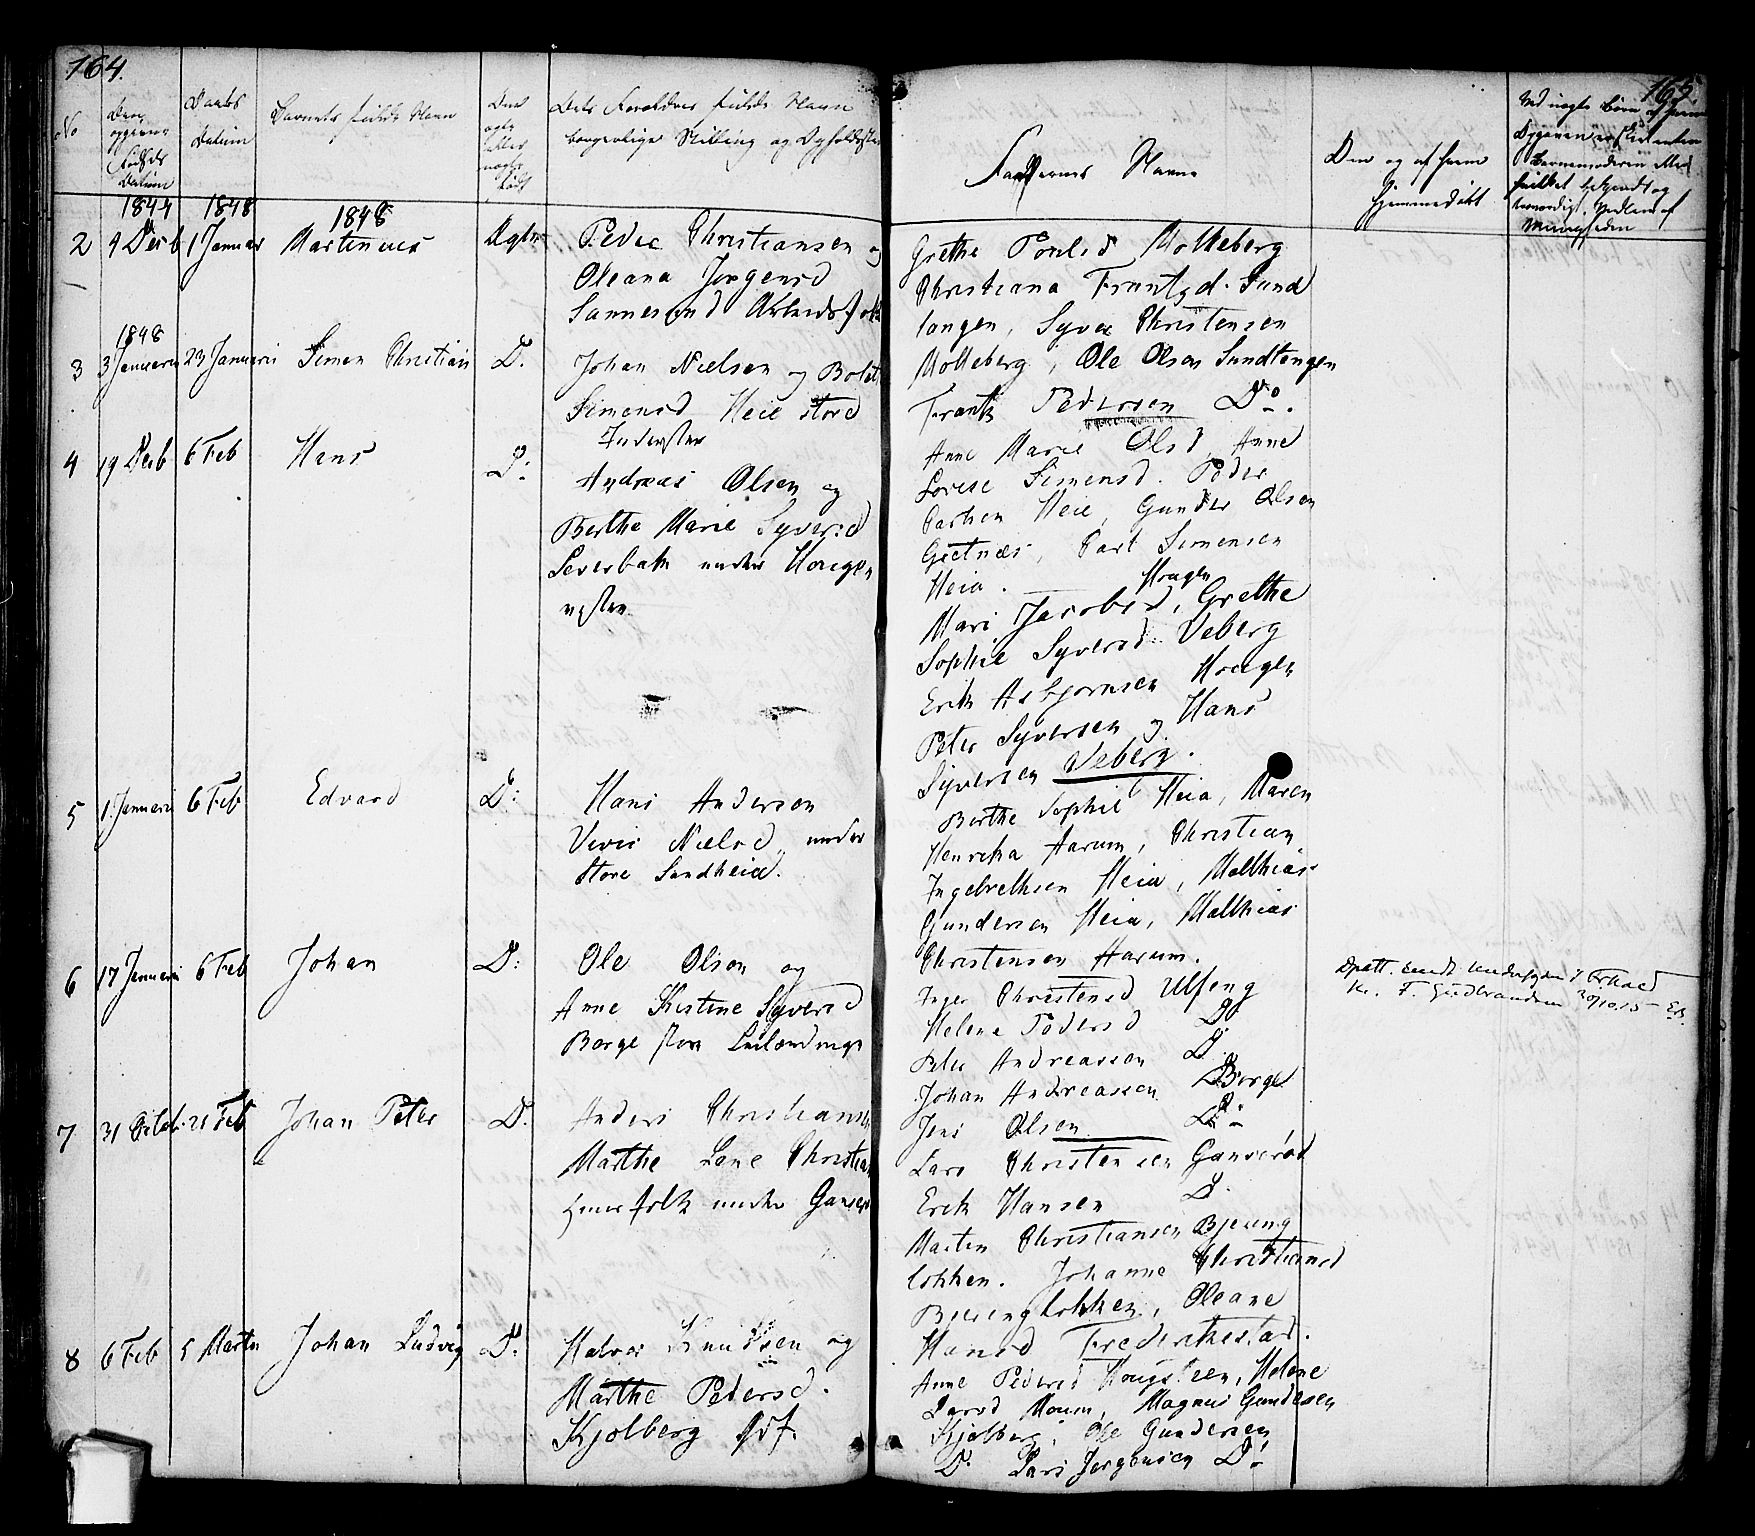 164.
No
Dens
opgivne
Fødsels
Datum
Daabs
Datum
Barnets fulde Navn
Om
ægte
eller
uægte
født
Dets Forældres fulde Navn
borgerlige Stilling og Opholdssted
1844 1848
1848
2 4 Decb 1 Januar Martinius Ægte
Peder Christiansen og
Oleana Jørgensd
Sannesund Arbeidsfolk
1848
3 3 Januarii 23 Januarii Simen Christian D.
Johan Nielsen og Bolet
Simensd Heie store
Inderster
4 19 Decb 6 Feb Hans D:
Andreas Olsen og
Berthe Marie Syversd
Leverbakk under Hougen
vestre
5 1 Januarii 6 Feb Edvard D:
Hans Andersen
Vivis Nielsd under
Store Sandheia.
6 17 Januarii 6 Feb Johan D:
Ole Olsen og
Anne Kistine Syversd
Borge store Leilændinge
7 31 Octob. 21 Feb Johan Peter D.
Anders Christiansen
Marthe Lene Christian
Huusfolk under Ganser
8 6 Feb 5 Martii Johan Ludvig D:
Halvor Knudsen og
Marthe Pedersd.
Kjølberg
165.
Faddernes Navne
Om og af hvem
hjemmedøbt
Ved uægte Børn af hvem
Barnemoderen Med
hvilket bekjendt og
troværdigt Medlem af
Menigheden
Grethe Poulsd Molteberg
Christiana Frantzd. Sund
tangen, Syver Christensen
Molteberg, Ole Olsen Sundtangen
Frantz Pedersen Do.
Anne Marie Olsd, Anne
Lovise Simensd. Peder
Carlsen Heie, Gunder Olsen
Gretnæs, Carl Simensen
Heia.
Hougen
Mari Jacobsd, Grethe
Sophie Syversd Veberg
Erik Asbjørnsen Hougen
Peter Syversen og Hans
Syversen Veberg.
Berthe Sophie Heia, Maren
Henrikka Aarum, Christian
Ingebrethsen Heia, Matthias
Gundersen Heia, Matthias
Christensen Aarum.
Inger Christensd Ulfeng
Helene Pedersd D.
Peter Andreassen D.
Johan Andreassen Borge
Jens Olsen D:
Lars Christensen Gansrød
Erik Hansen D.
Martin Christiansen Bjerring
løkken. Johanne Christiansd
Bjerringløkken, Oleane
Hansd Frederikstad.
Anne Pedersd Hougsteen, Helene
Larsd Moum, Magnus Gundersen
Kjølberg, Ole Gundersen
D. Lars Jørgensen D:
20/10.15